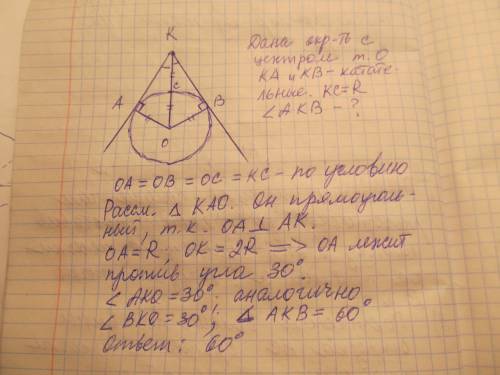 K
Дана окр-ть с
центром т. О
КА и КВ - касате
льные. КС=R
∠AKB - ?
C
A
B
O
OA = OB = OC = KC - по условию
Рассм. △ KAO. Он прямоуголь-
ный, т.к. OA⊥AK.
OA=R, OK=2R => OA лежит
против угла 30°.
∠AKO=30°. аналогично
∠BKO=30°; ∠AKB=60°
Ответ: 60°